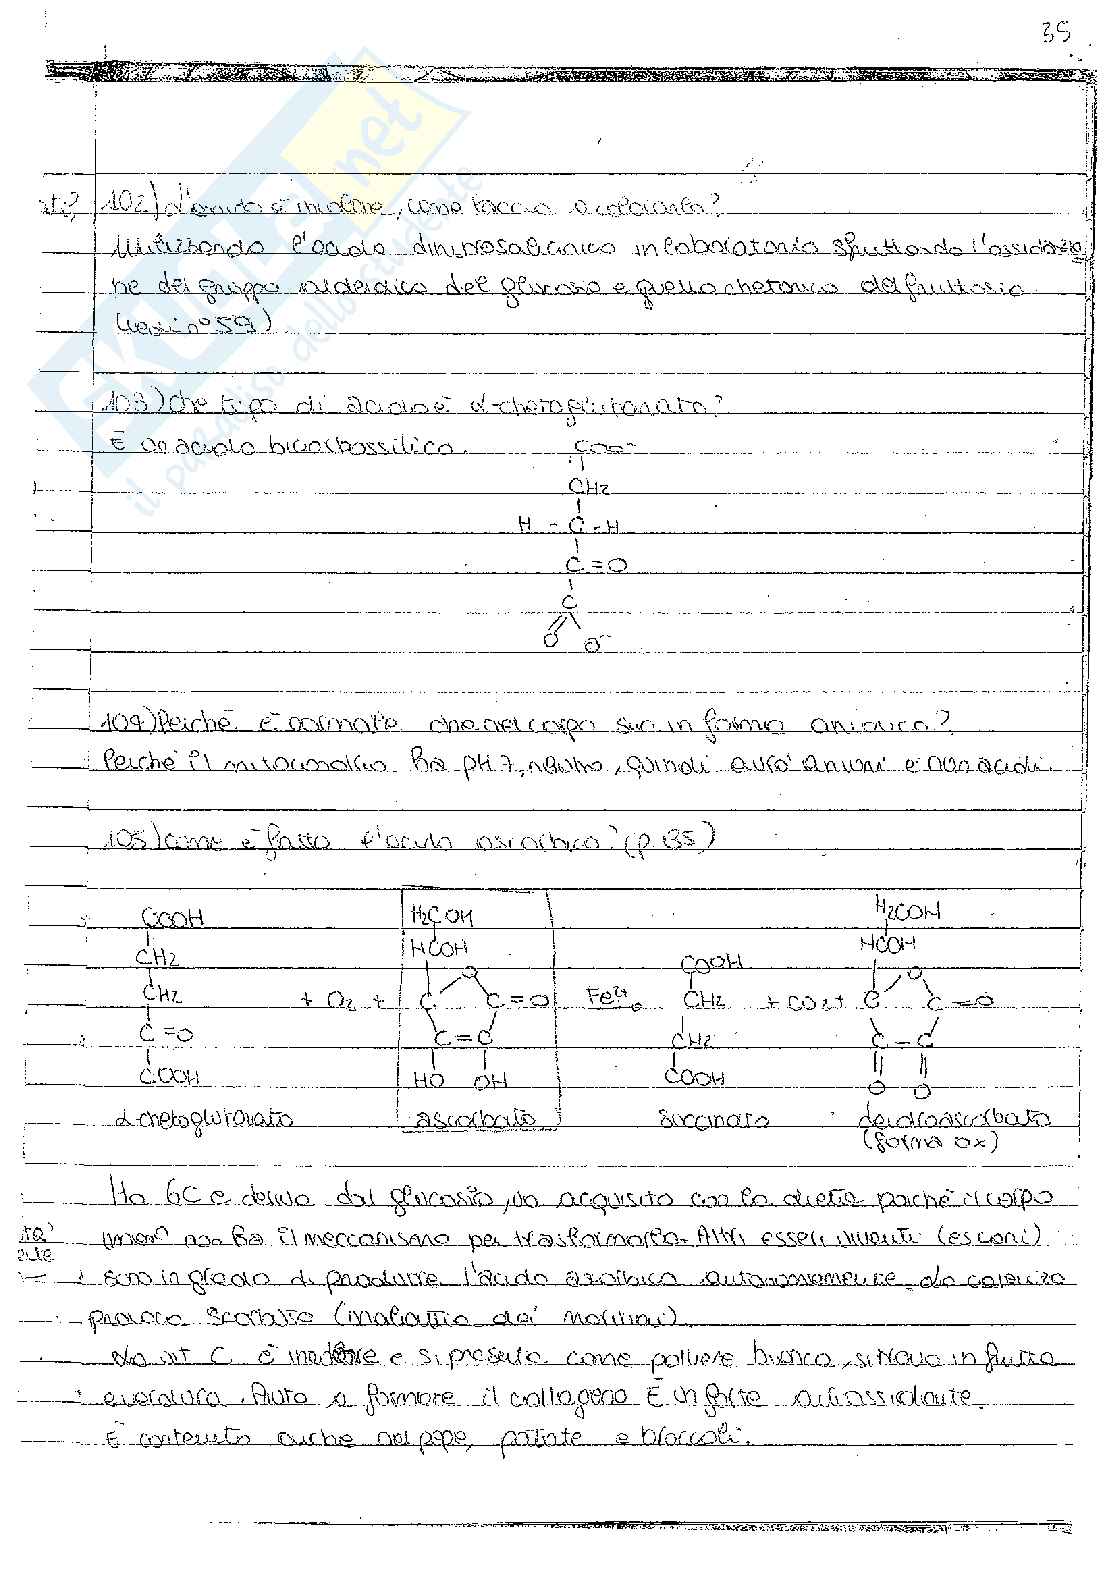 35
SKUOLA.net
il paradiso dello studente
102) L'amido è incolore, come faccio a colorarlo?
Utilizzando l'acido dinitrosalicilico in laboratorio sfruttando l'ossidazio
ne del gruppo aldeidico del glucosio e quello chetonico del fruttosio
(vedi n° 59)
103) Che tipo di acido è α-chetoglutarato?
È un acido bicarbossilico.
COO⁻
CH2
H - C - H
C = O
C
O O⁻
104) Perché è normale che nel corpo sia in forma anionica?
Perché il mitocondrio ha pH 7, neutro, quindi avrà anioni e non acidi.
105) Come è fatto l'acido ascorbico? (p. 85)
COOH H2COH H2COH
CH2 HCOH COOH HCOH
CH2 + O2 + C O C = O Fe2+ CH2 + CO2 + C O C = O
C = O C = C CH2 C - C
COOH HO OH COOH O O
α-chetoglutarato ascorbato succinato deidroascorbato
(forma ox)
Ha 6C e deriva dal glucosio, va acquisito con la dieta poiché il corpo
umano non ha il meccanismo per trasformarlo. Altri esseri viventi (es cani)
sono in grado di produrre l'acido ascorbico autonomamente. La carenza
provoca Scorbuto (malattia dei marinai)
La vit C è incolore e si presenta come polvere bianca, si trova in frutta
e verdura. Aiuta a formare il collagene È un forte antiossidante.
È contenuto anche nel pepe, patate e broccoli.